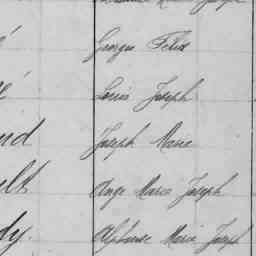 Georges Felix
Louis Joseph
Joseph Marie
Ange Marie Joseph
Alphonse Marie Joseph